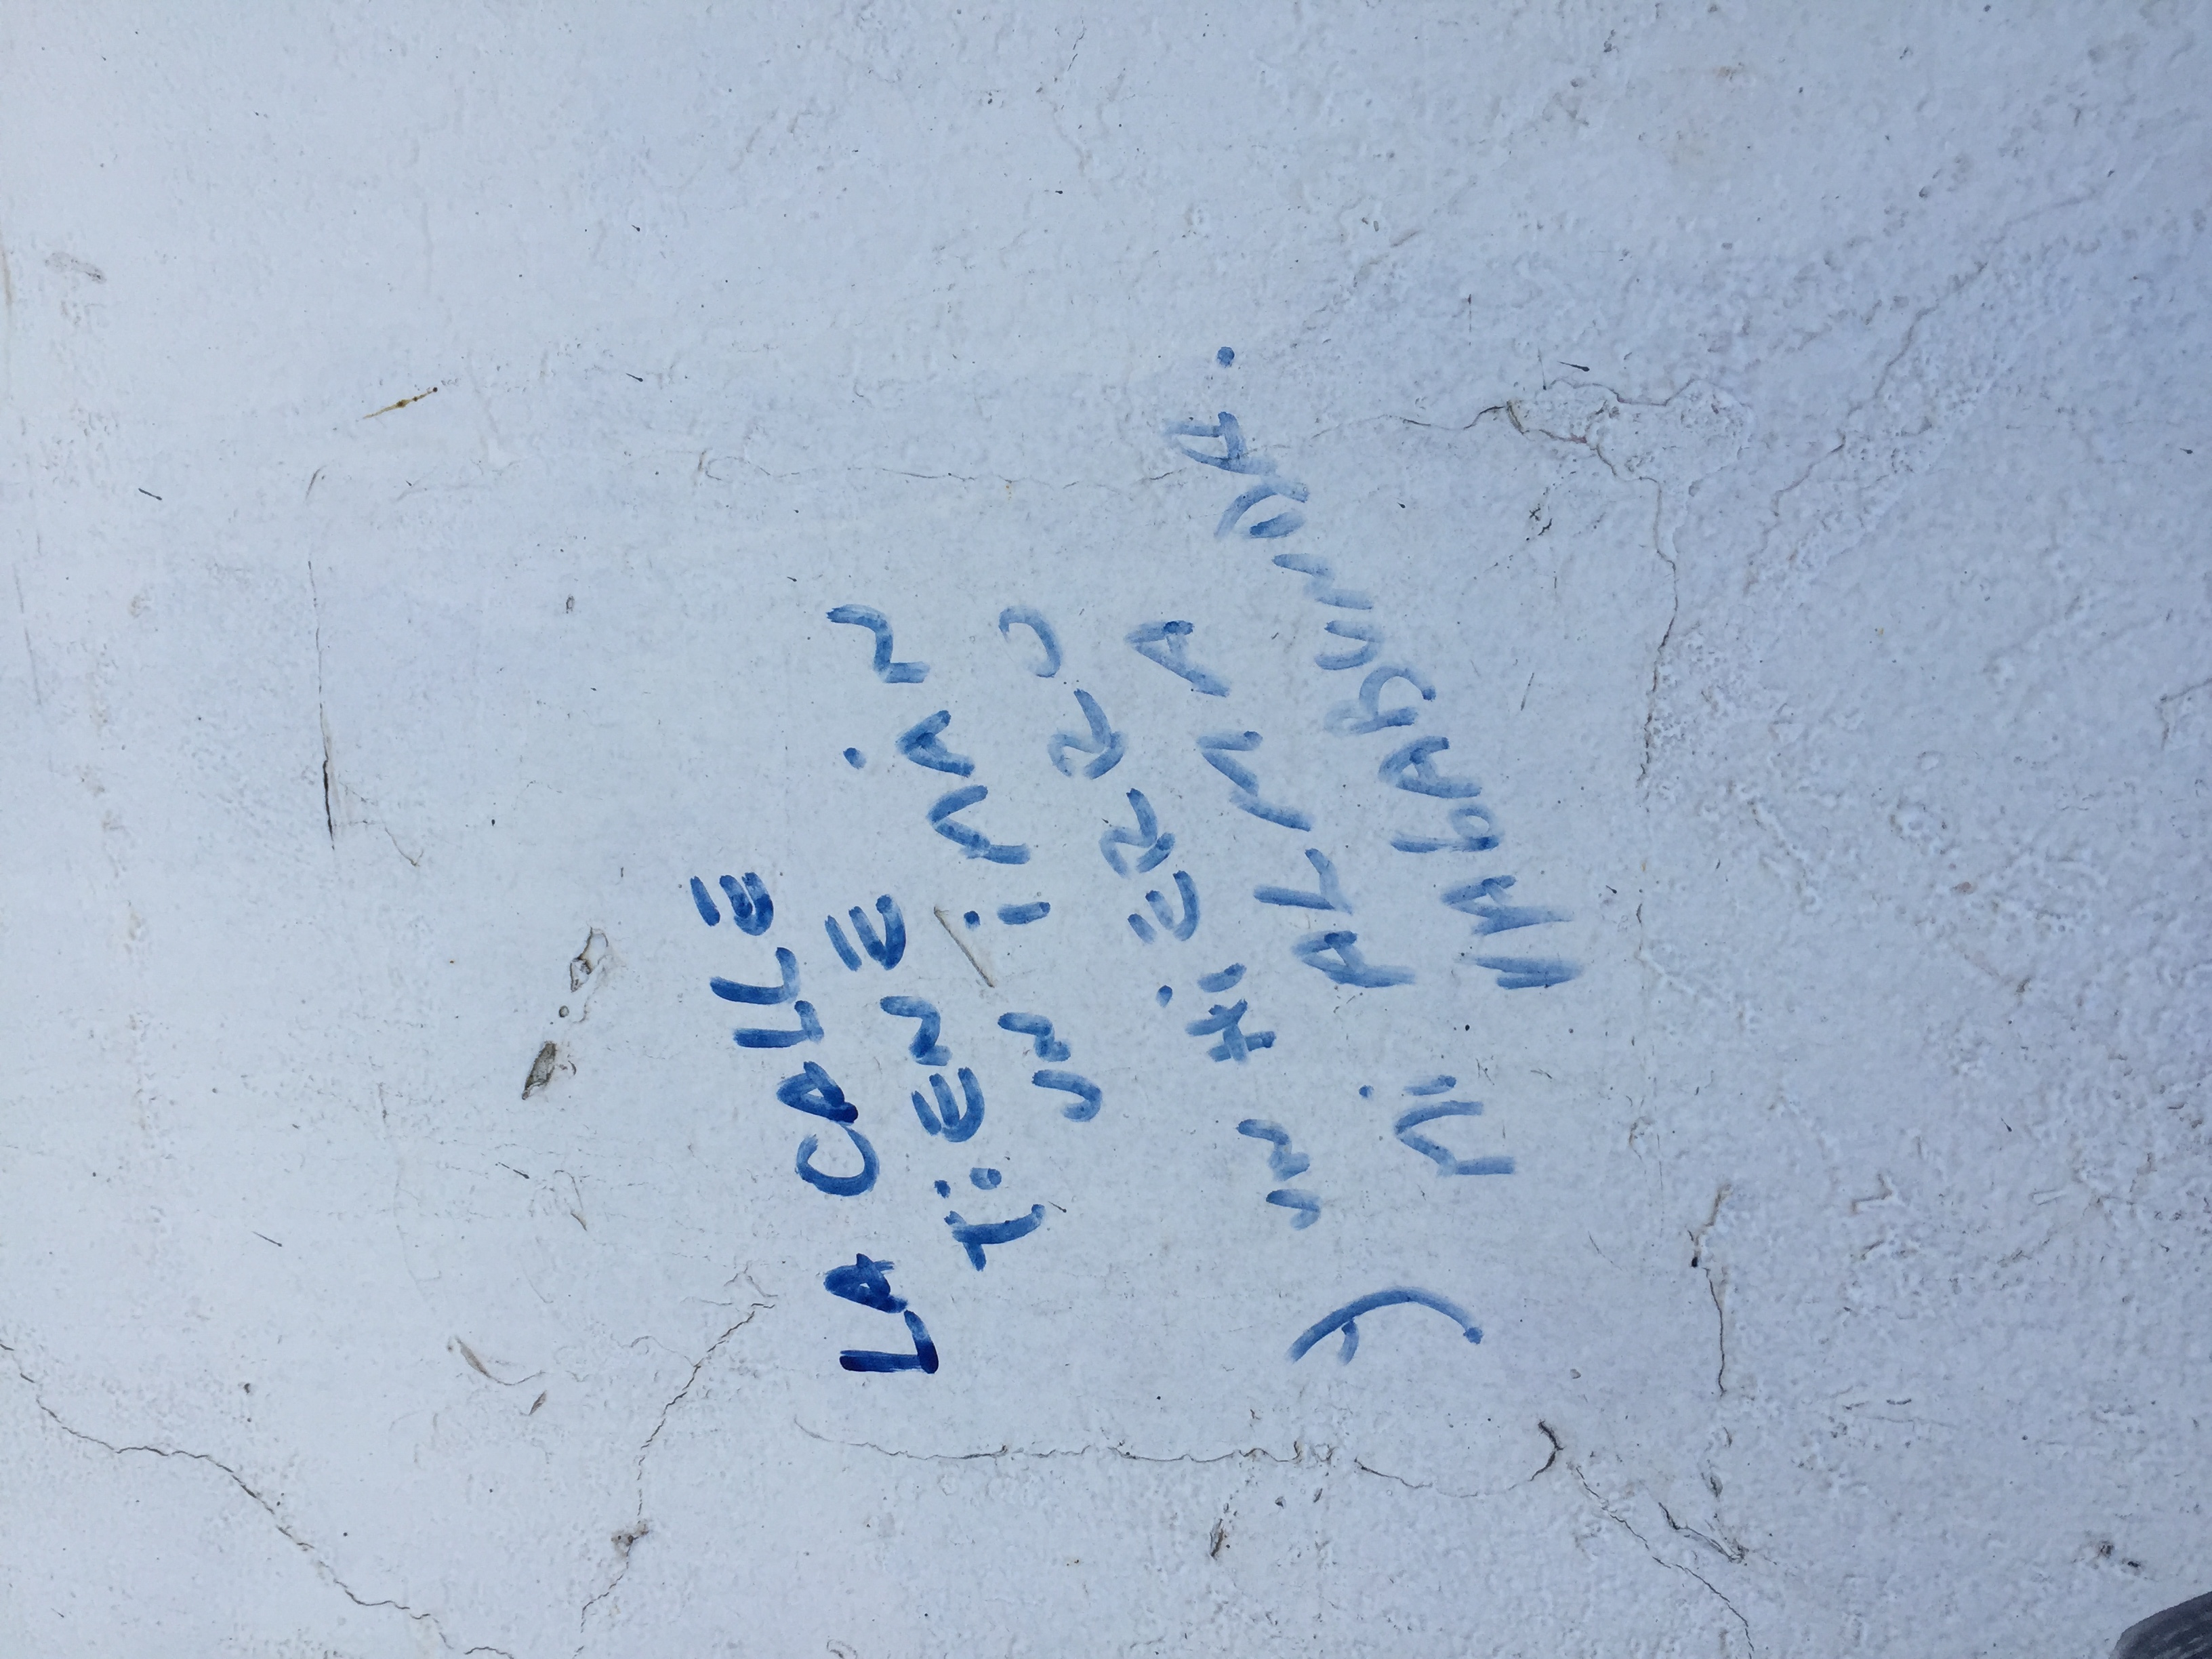 LA CALLE
TiENE
UN iMÁN
Y UN HiERRO
Mi ALMA
VAGABUNDA.